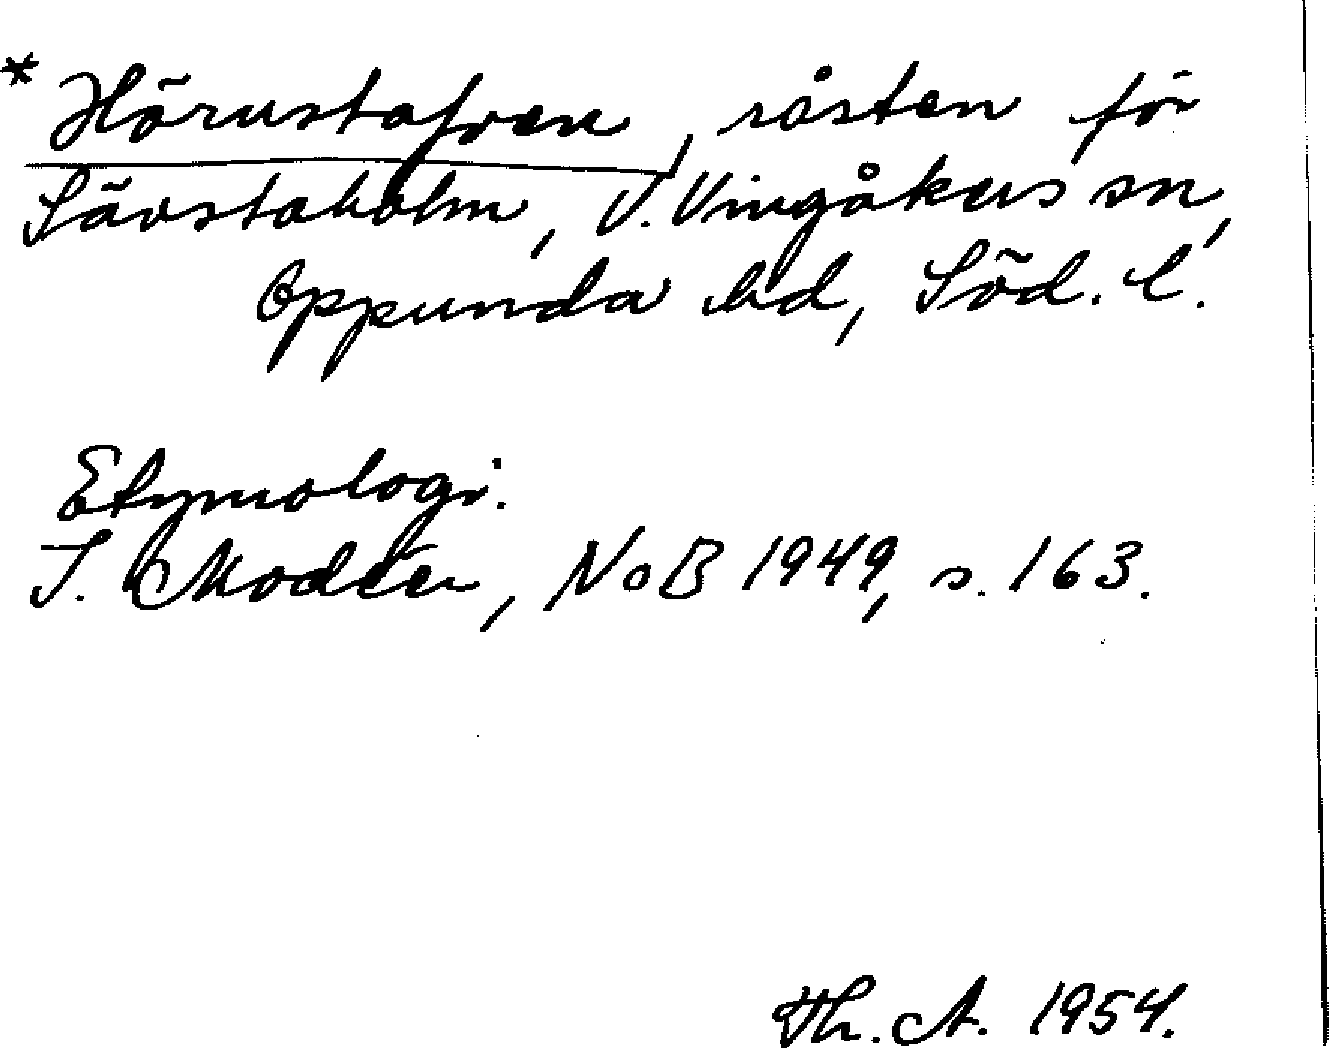 * Hörustafven, råsten för
Sävstaholm, V. Vingåkers sn,
Oppunda hd, Söd. l.
Etymologi.
I. Modéer, NoB 1949, s. 163.
Th. A. 1954.